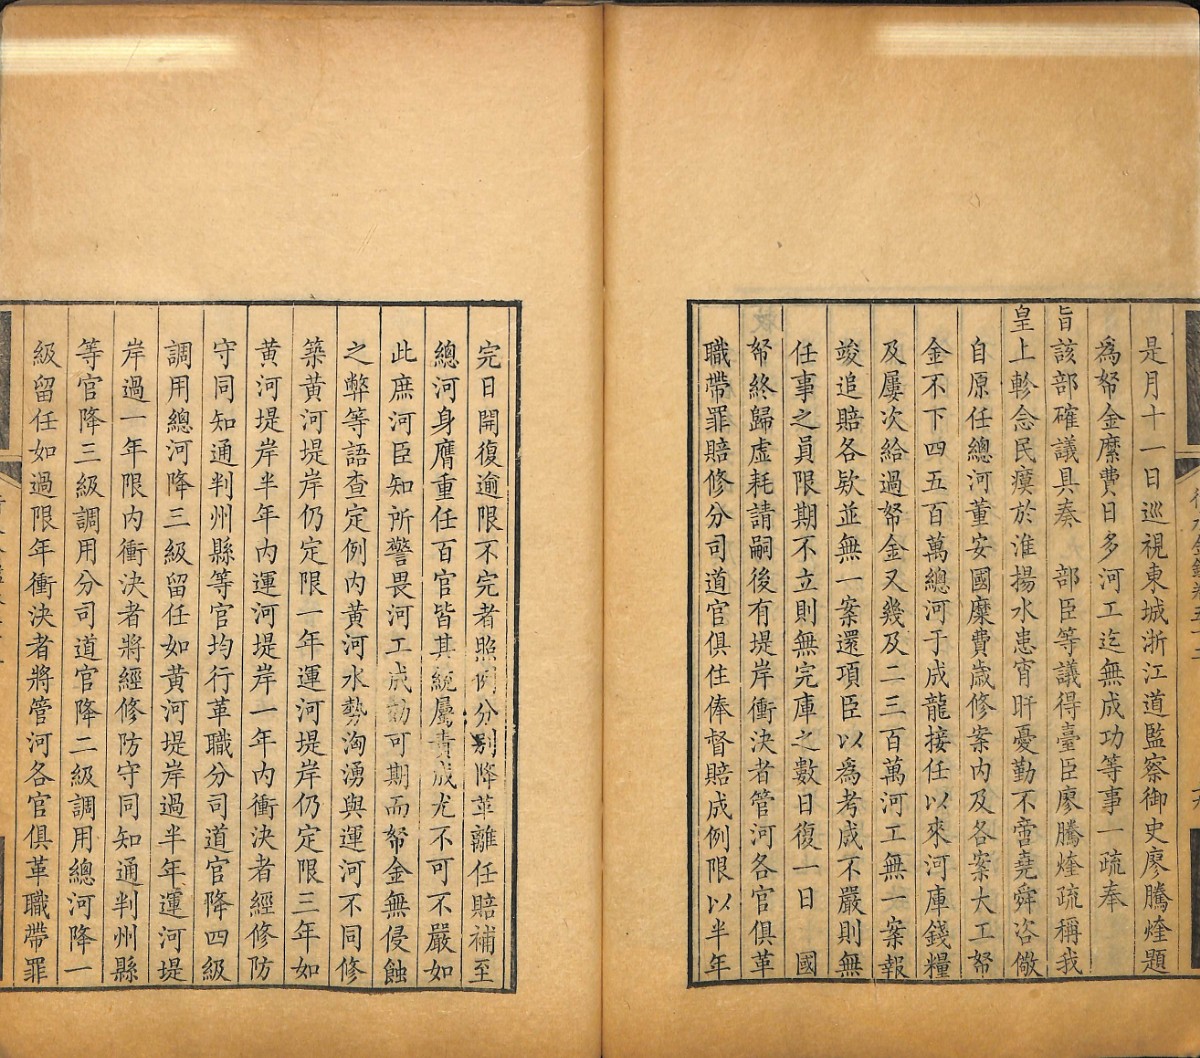 是月十一日巡視東城浙江道監察御史廖騰煃題
為帑金縻費日多河工迄無成功等事一疏奉
旨該部確議具奏　部臣等議得臺臣廖騰煃疏稱我
皇上軫念民瘼於淮揚水患宵旰憂勤不啻堯舜咨儆
自原任總河董安國糜費歲修案內及各案大工帑
金不下四五百萬總河于成龍接任以來河庫錢糧
及屢次給過帑金又幾及二三百萬河工無一案報
竣追賠各欵並無一案還項臣以為考成不嚴則無
任事之員限期不立則無完庫之數日復一日　國
帑終歸虛耗請嗣後有堤岸衝決者管河各官俱革
職帶罪賠修分司道官俱住俸督賠成例限以半年
完日開復逾限不完者照例分別降革離任賠補至
總河身膺重任百官皆其統屬責成尤不可不嚴如
此庶河臣知所警畏河工成効可期而帑金無侵蝕
之弊等語查定例內黃河水勢洶湧與運河不同修
築黃河堤岸仍定限一年運河堤岸仍定限三年如
黃河堤岸半年內運河堤岸一年內衝決者經修防
守同知通判州縣等官均行革職分司道官降四級
調用總河降三級留任如黃河堤岸過半年運河堤
岸過一年限內衝決者將經修防守同知通判州縣
等官降三級調用分司道官降二級調用總河降一
級留任如過限年衝決者將管河各官俱革職帶罪